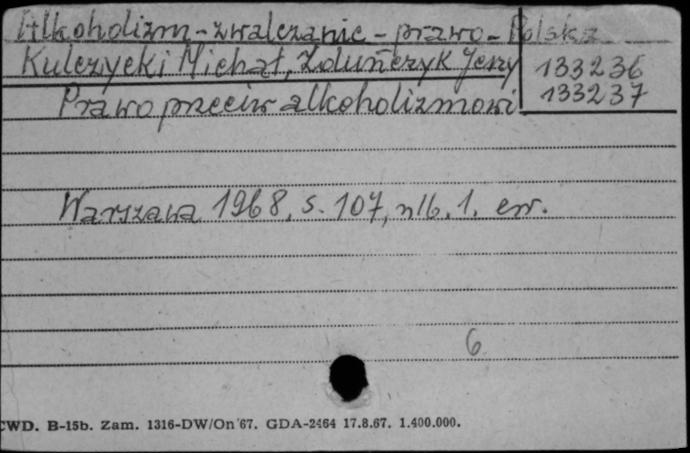 Alkoholizm - zwalczanie - prawo - Polska
Kulczycki Michał, Zduńczyk Jerzy
133236
133237
Prawo przeciw alkoholizmowi
Warszawa 1968, s. 107, nlb. 1. err.
6
CWD. B-15b. Zam. 1316-DW/On 67. GDA-2464 17.8.67. 1.400.000.